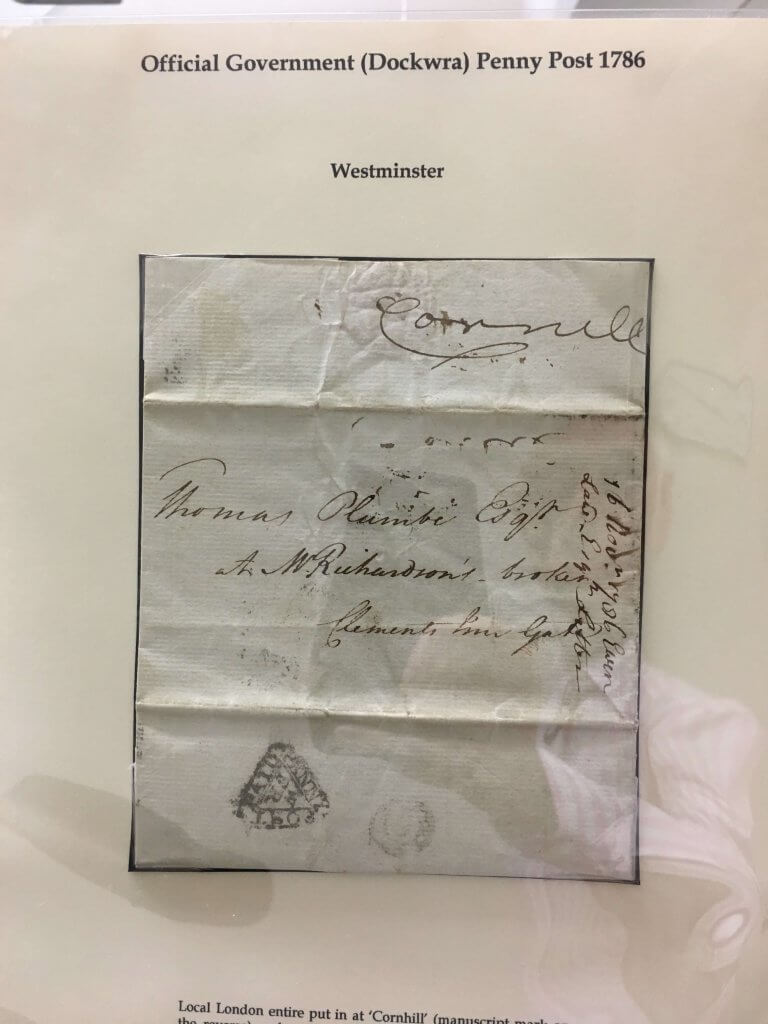 Official Government (Dockwra) Penny Post 1786
Westminster
Cornhill
Thomas Plumbe Esqr.
at Mr Richardson's broker
Clements Inn Gate
16 Novr. 1786 Even
PENNY
Local London entire put in at 'Cornhill' (manuscript mark
the reverse)